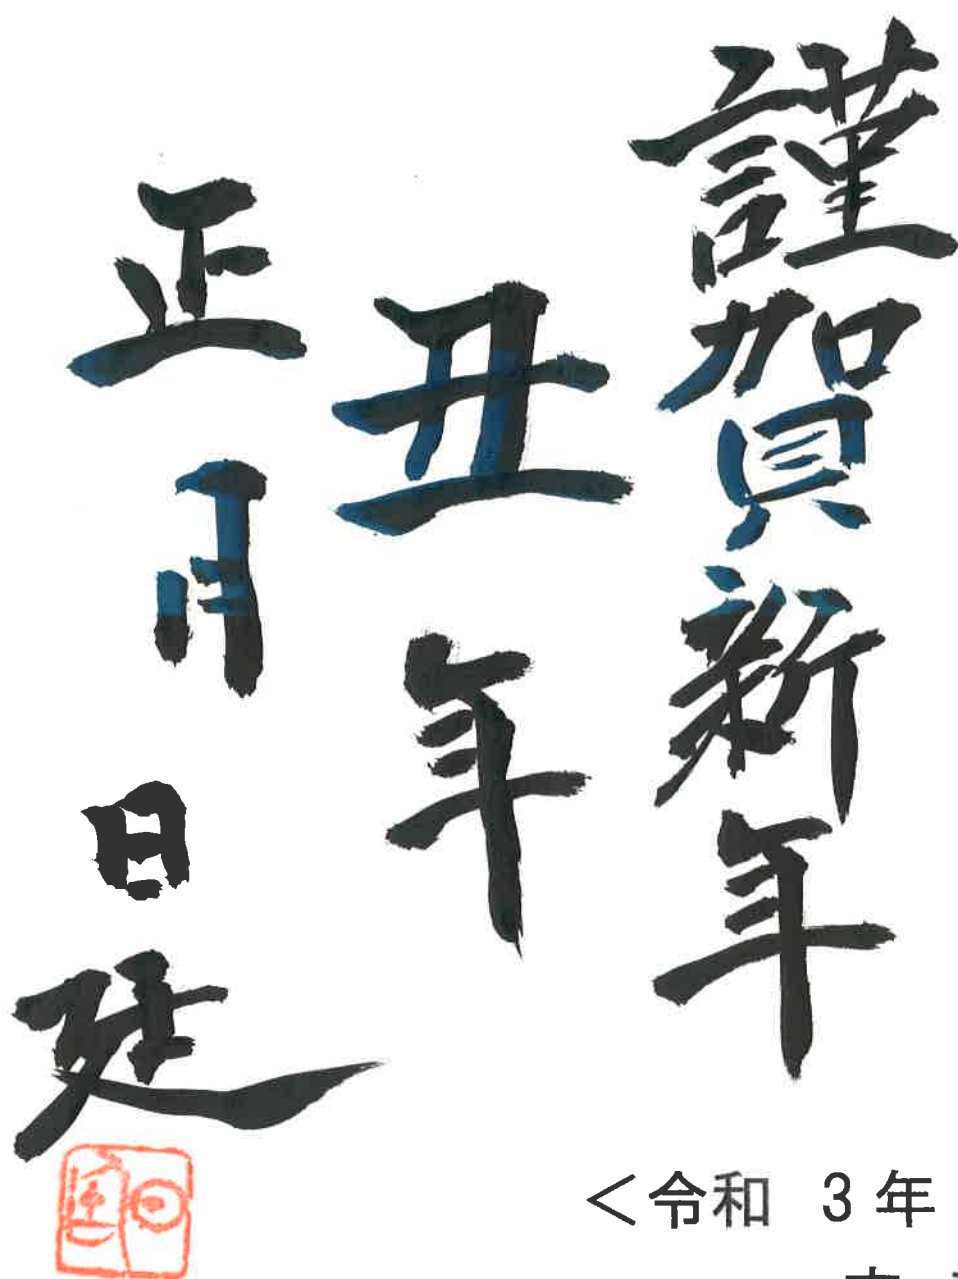 謹賀新年
丑年
正月
日延
＜令和 3年